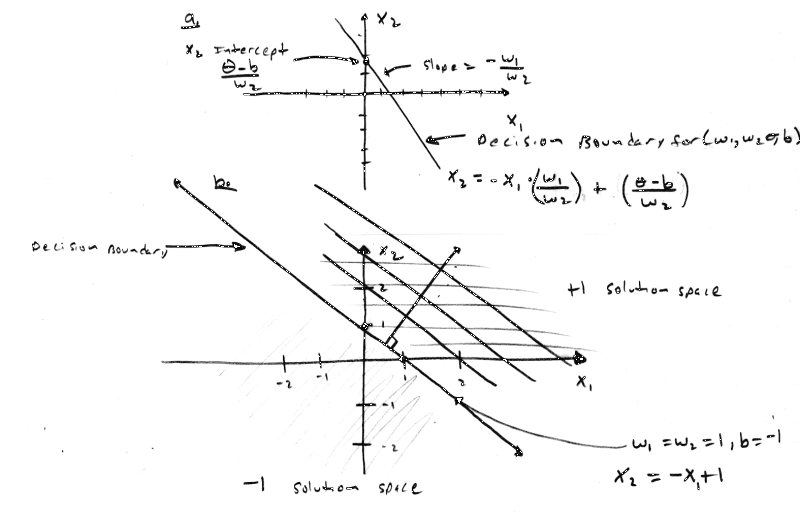 a.
X2
X2 Intercept
θ-b
w2
slope = - w1
w2
X1
Decision Boundary for (w1, w2 θ, b)
X2 = - X1 · (w1/w2) + (θ-b/w2)
b.
Decision Boundary
X2
2
1
+1 solution space
-2 -1 1 2
X1
-1
-2
w1 = w2 = 1, b = -1
X2 = -X1+1
-1 solution space